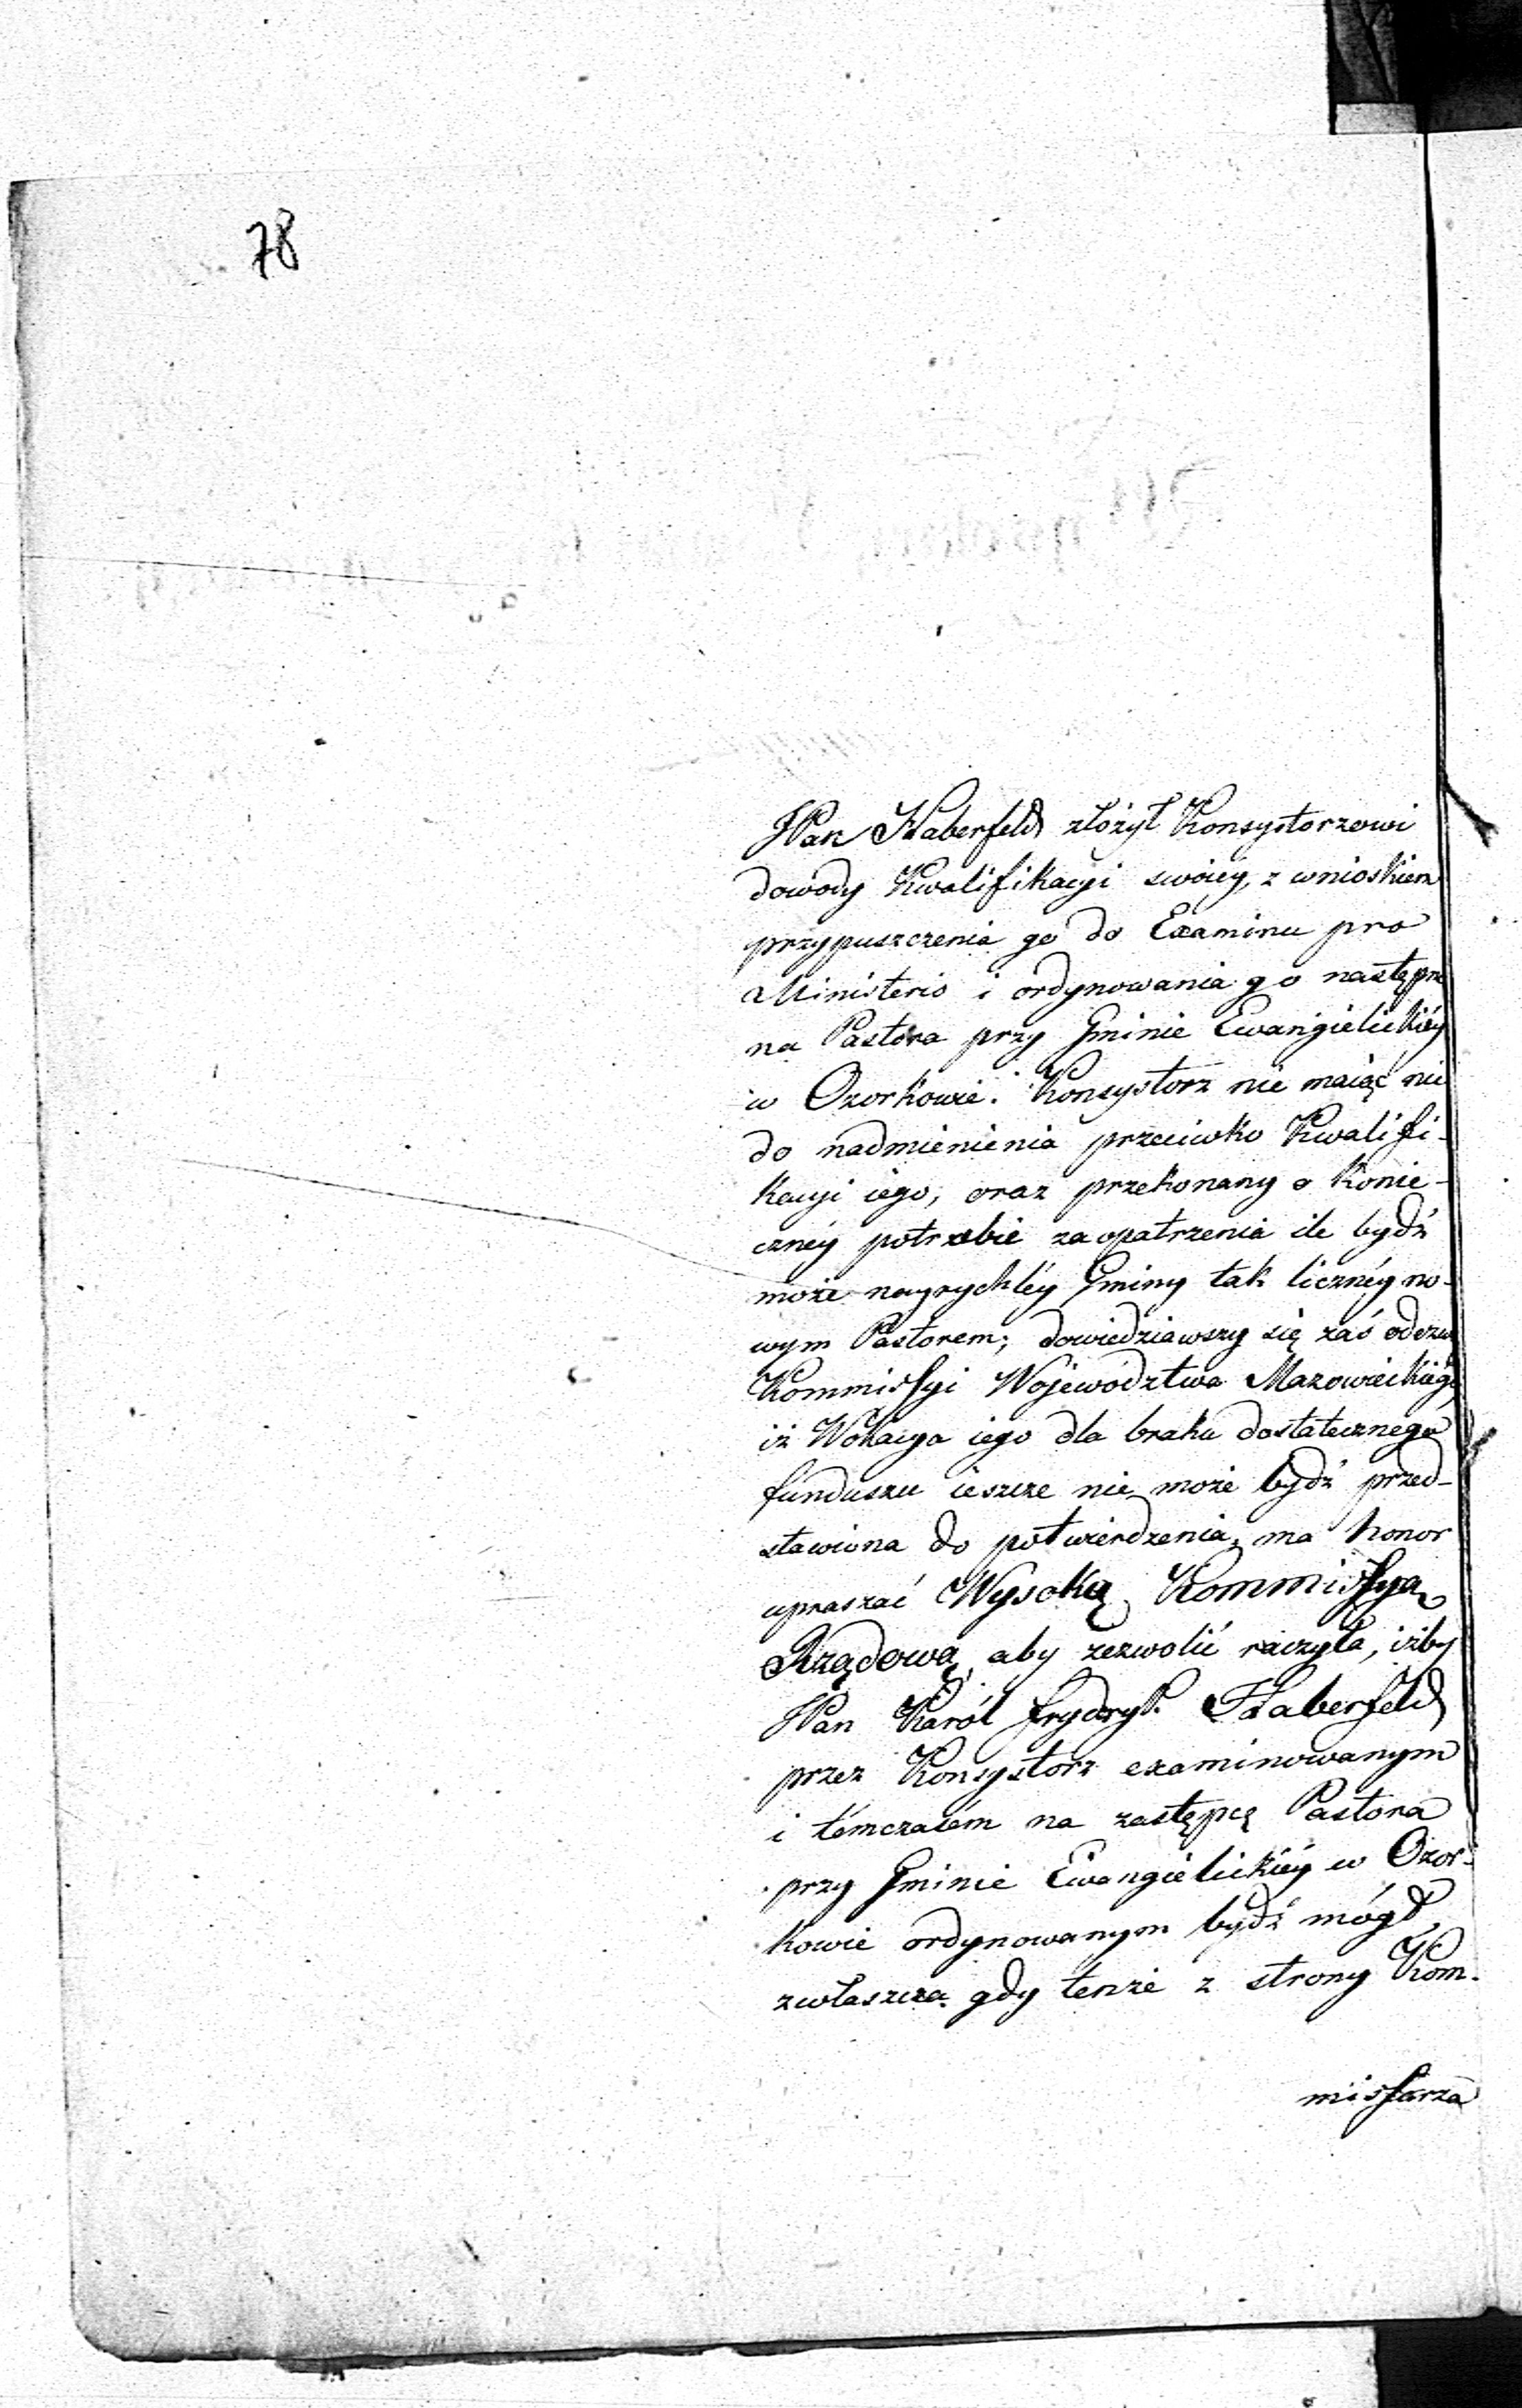 78
JPan Haberfeld złożył Konsystorzowi
dowody Kwalifikacyi swoiéy, z wnioskiem
przypuszczenia go do Examinu pro
Ministerio i ordynowania go następn
na Pastora przy Gminie Ewangielickiéy
w Ozorkowie. Konsystorz nie maiąc nic
do nadmienienia przeciwko Kwalifi-
kacyi iego, oraz przekonany o konie-
cznéy potrzebie zaopatrzenia ile bydź
może nayrychléy Gminy tak licznéy no-
wym Pastorem; dowiedziawszy się zaś odezw
Kommissyi Województwa Mazowieckiego
iż Wokacya iego dla braku dostatecznego
funduszu ieszcze nie może bydź przed-
stawiona do potwierdzenia, ma honor
upraszać Wysoką Kommissyą
Rządową, aby zezwolić raczyła, iżby
JPan Karól Frydryk Haberfeld
przez Konsystorz examinowanym
i témczasém na zastępcę Pastora
przy Gminie Ewangielickiéy w Ozor-
kowie ordynowanym bydź mógł,
zwłaszcza gdy tenże z strony Kom-
missarza